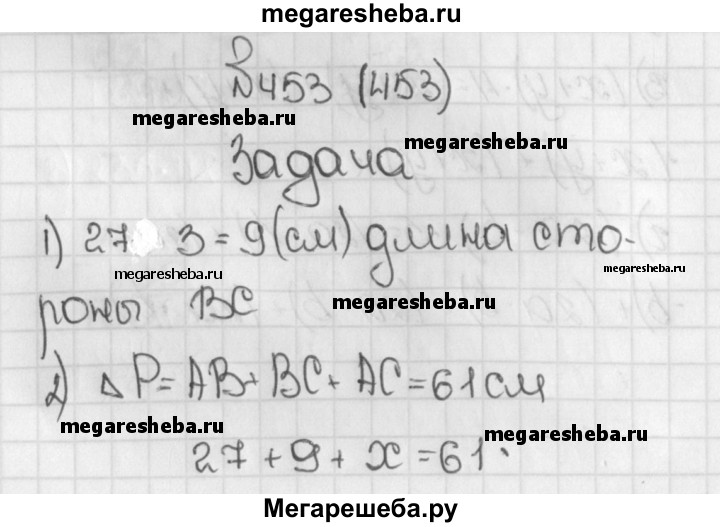 megaresheba.ru
№453 (453)
megaresheba.ru
megaresheba.ru
Задача
1) 27 3 = 9 (см) длина сто-
megaresheba.ru
megaresheba.ru
роны ВС
megaresheba.ru
2) △ P = AB + BC + AC = 61 см
megaresheba.ru
megaresheba.ru
27 + 9 + x = 61.
Мегарешеба.ру